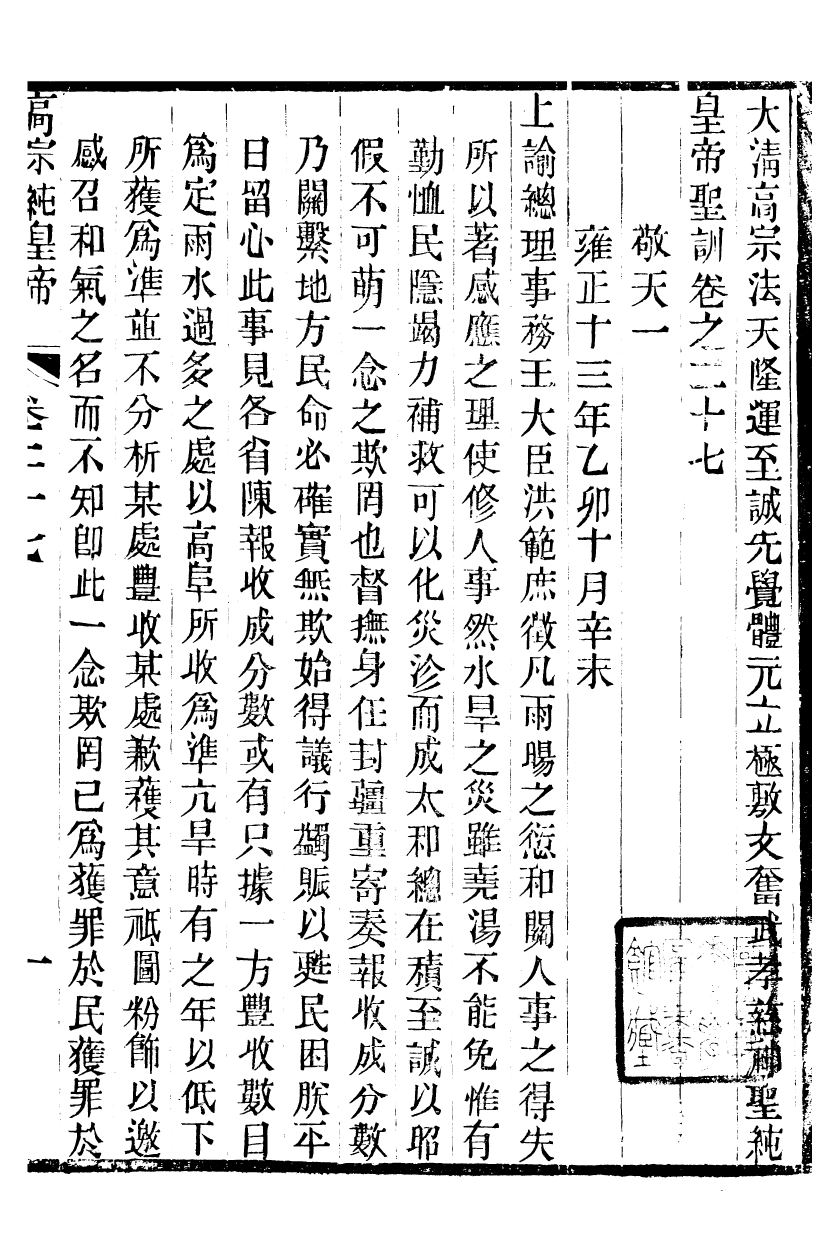 大清高宗法天隆運至誠先覺體元立極敷文奮武孝慈神聖純
皇帝聖訓卷之二十七
敬天一
雍正十三年乙卯十月辛未
上諭總理事務王大臣洪範庶徵凡雨暘之愆和關人事之得失
所以著感應之理使修人事然水旱之災雖堯湯不能免惟有
勤恤民隱竭力補救可以化災沴而成太和總在積至誠以昭
假不可萌一念之欺罔也督撫身任封疆重寄奏報收成分數
乃關繫地方民命必確實無欺始得議行蠲賑以甦民困朕平
日留心此事見各省陳報收成分數或有只據一方豐收數目
為定雨水過多之處以高阜所收為準亢旱時有之年以低下
所獲為準並不分析某處豐收某處歉穫其意祇圖粉飾以邀
感召和氣之名而不知卽此一念欺罔已為獲罪於民獲罪於
高宗純皇帝 卷二十七 一